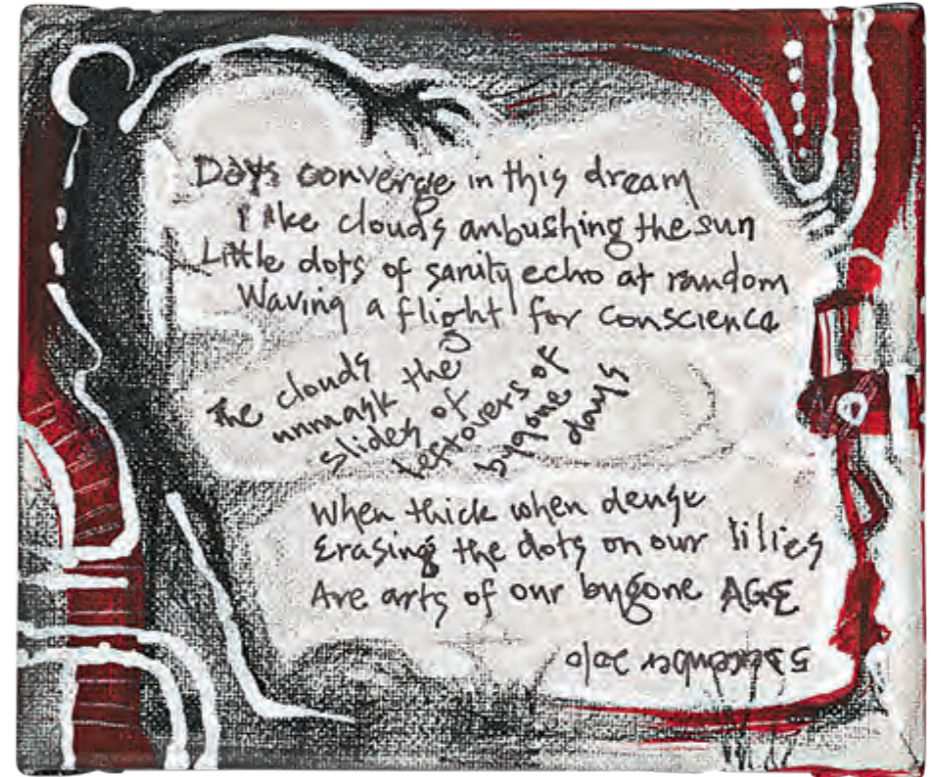 Days converge in this dream
like clouds anbushing the sun
Little dots of sanity echo at random
Waving a flight for conscience
The clouds
unmask the
slides of
leftovers of
bygone
days
When thick when dense
Erasing the dots on our lilies
Are arts of our bygone AGE
5 December 2010